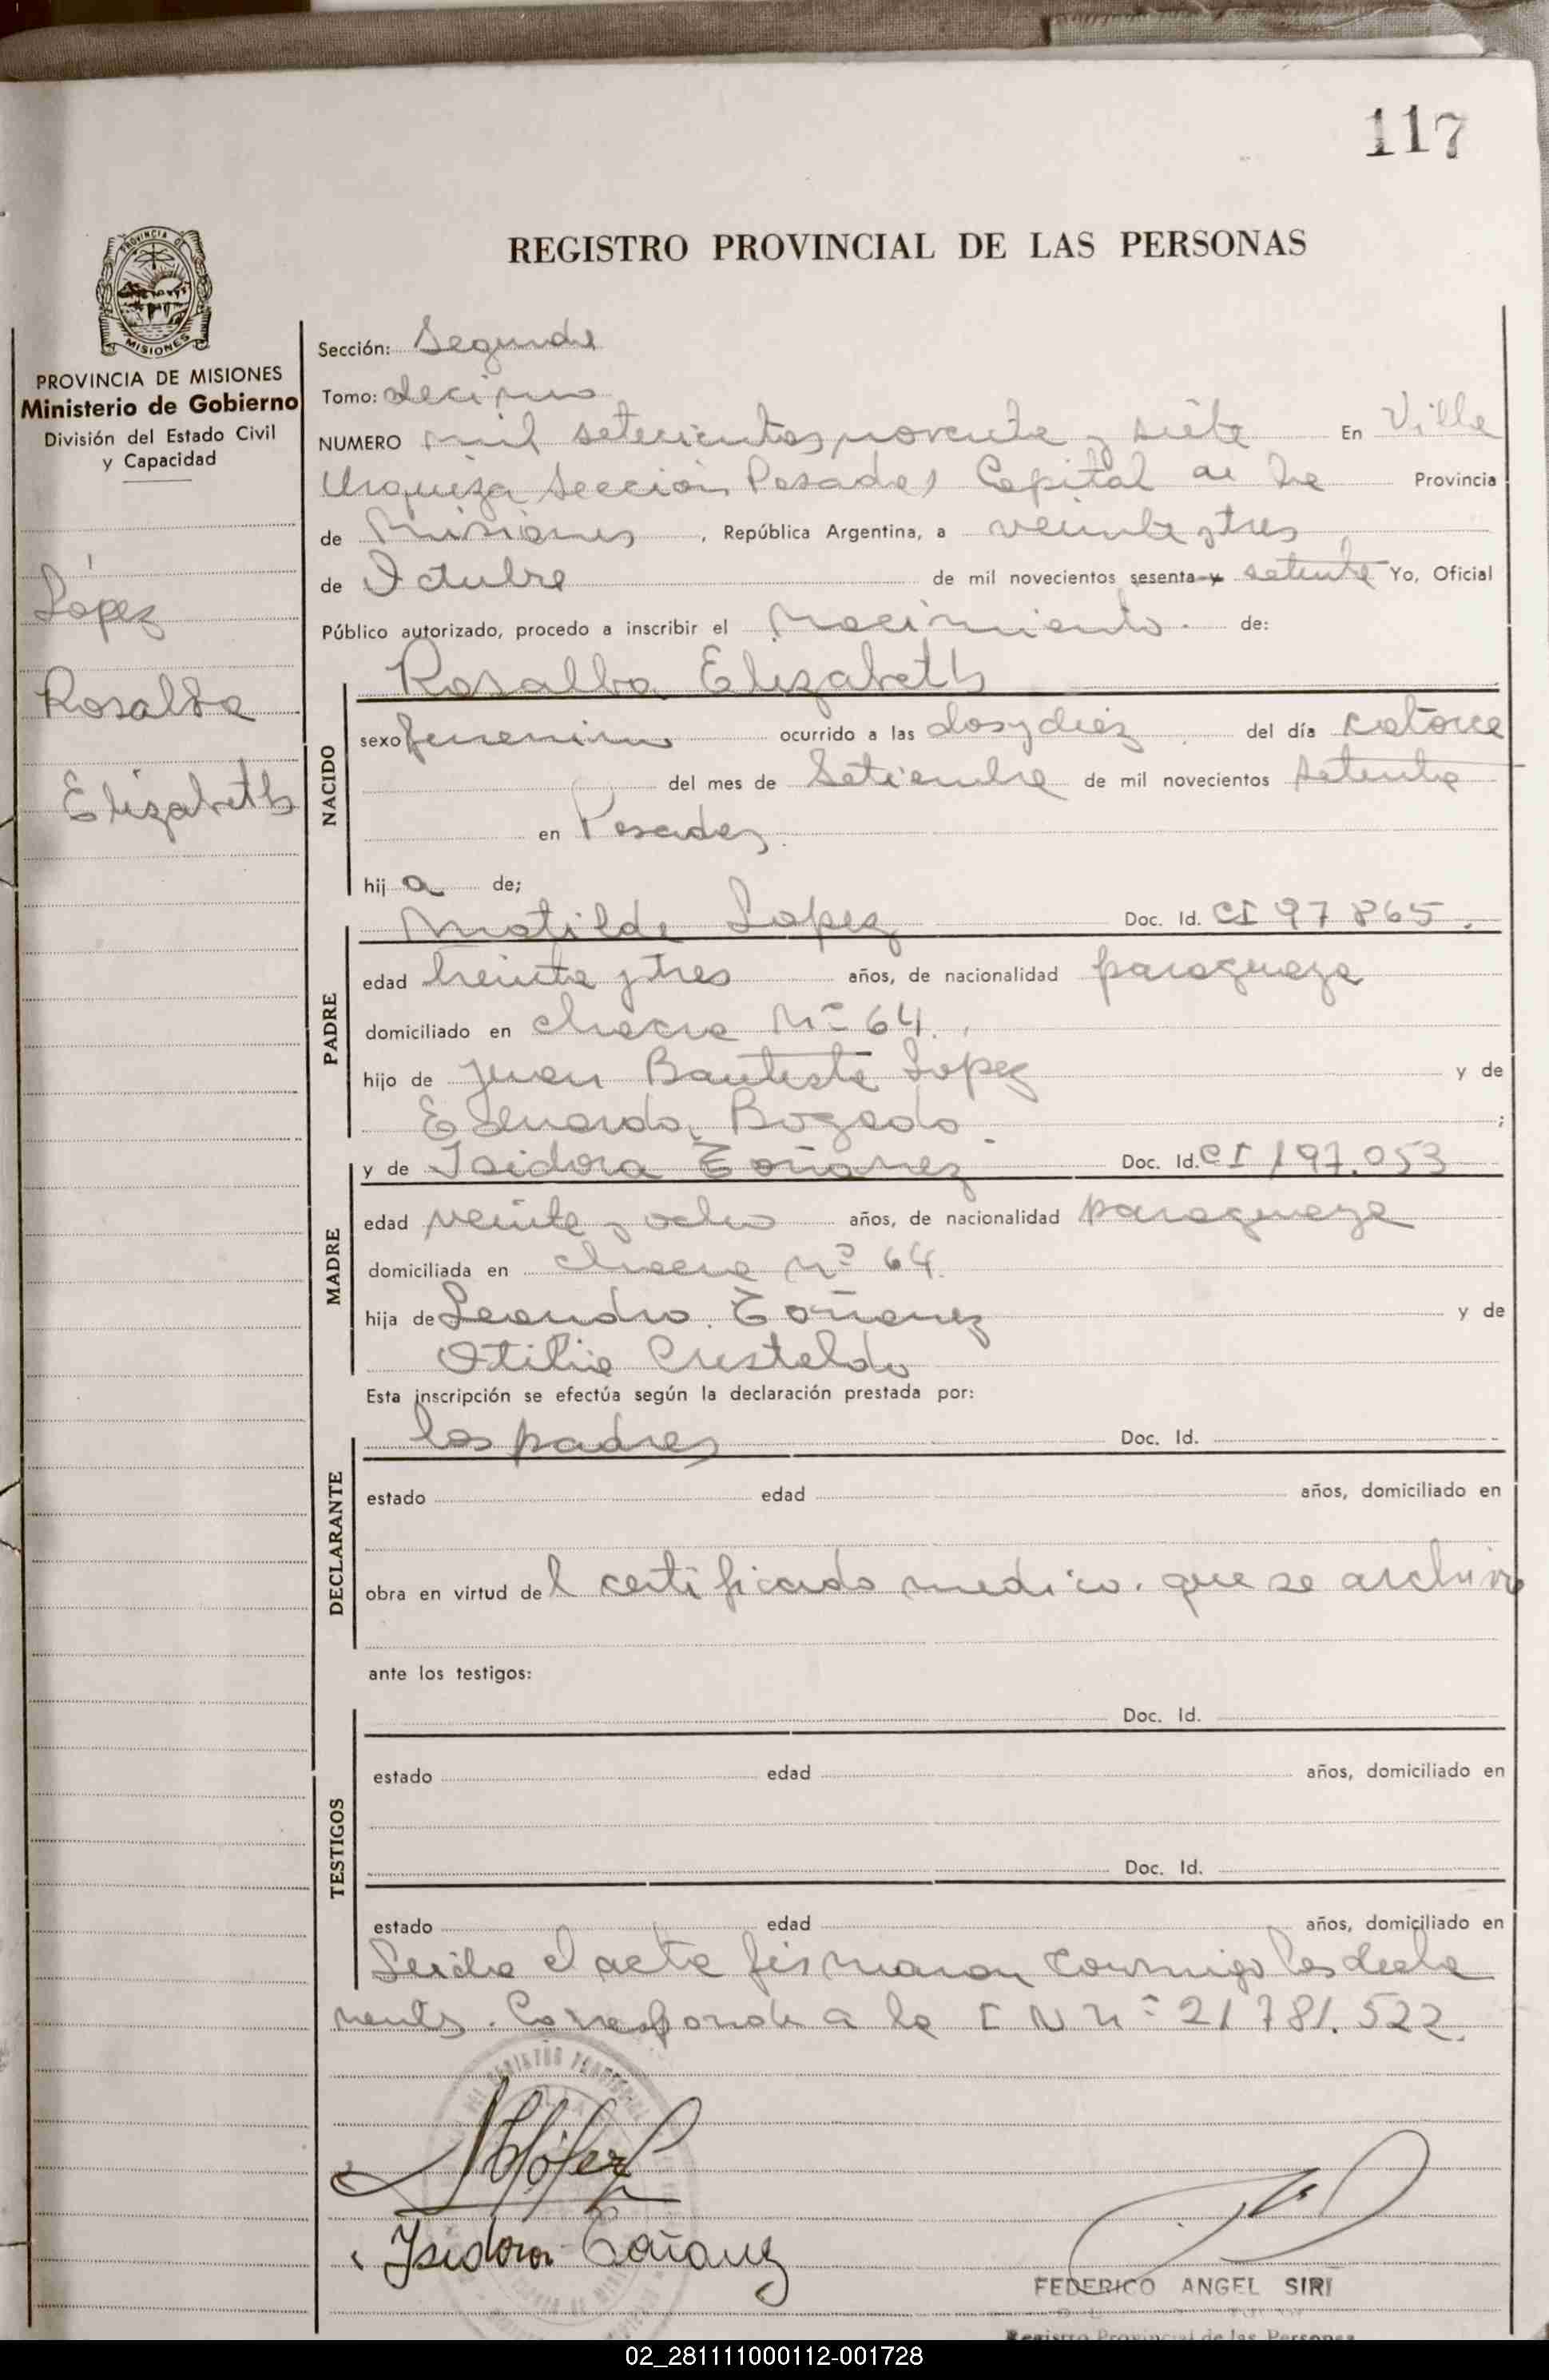 117
REGISTRO PROVINCIAL DE LAS PERSONAS
PROVINCIA DE MISIONES
PROVINCIA DE MISIONES
Ministerio de Gobierno
División del Estado Civil
y Capacidad
Lopez
Rosalba
Elizabeth
Sección: Segunda
Tomo: decimo
NUMERO mil setecientos noventa y siete En Villa
Urquiza Sección Posadas Capital de la Provincia
de Misiones, República Argentina, a veinte y tres
de Octubre de mil novecientos sesenta y setenta Yo, Oficial
Público autorizado, procedo a inscribir el Nacimiento. de:
NACIDO
Rosalba Elizabeth
sexo femenino ocurrido a las dos y diez del día catorce
del mes de Setiembre de mil novecientos setenta
en Posadas.
hij a de;
PADRE
Matilde Lopez Doc. Id. CI 97 865.
edad treinta y tres años, de nacionalidad paraguaya
domiciliado en chacra Nº 64.
hijo de Juan Bautista Lopez y de
Eduarda Bogado. ;
MADRE
y de Isidora Cañanez Doc. Id. CI 197.053
edad veinte y ocho años, de nacionalidad paraguaya
domiciliada en chacra nº 64.
hija de Leandro Cañanez y de
Otilia Cristaldo
Esta inscripción se efectúa según la declaración prestada por:
DECLARANTE
los padres Doc. Id.
estado edad años, domiciliado en
obra en virtud de l certificado medico. que se archiva
ante los testigos:
TESTIGOS
Doc. Id.
estado edad años, domiciliado en
Doc. Id.
estado edad años, domiciliado en
Leida el acta firmaron conmigo los decla
rantes. Corresponde a la I N nº 21 781.522.
Isidora Cañanez
FEDERICO ANGEL SIRI
Registro Provincial de las Personas
02_281111000112-001728